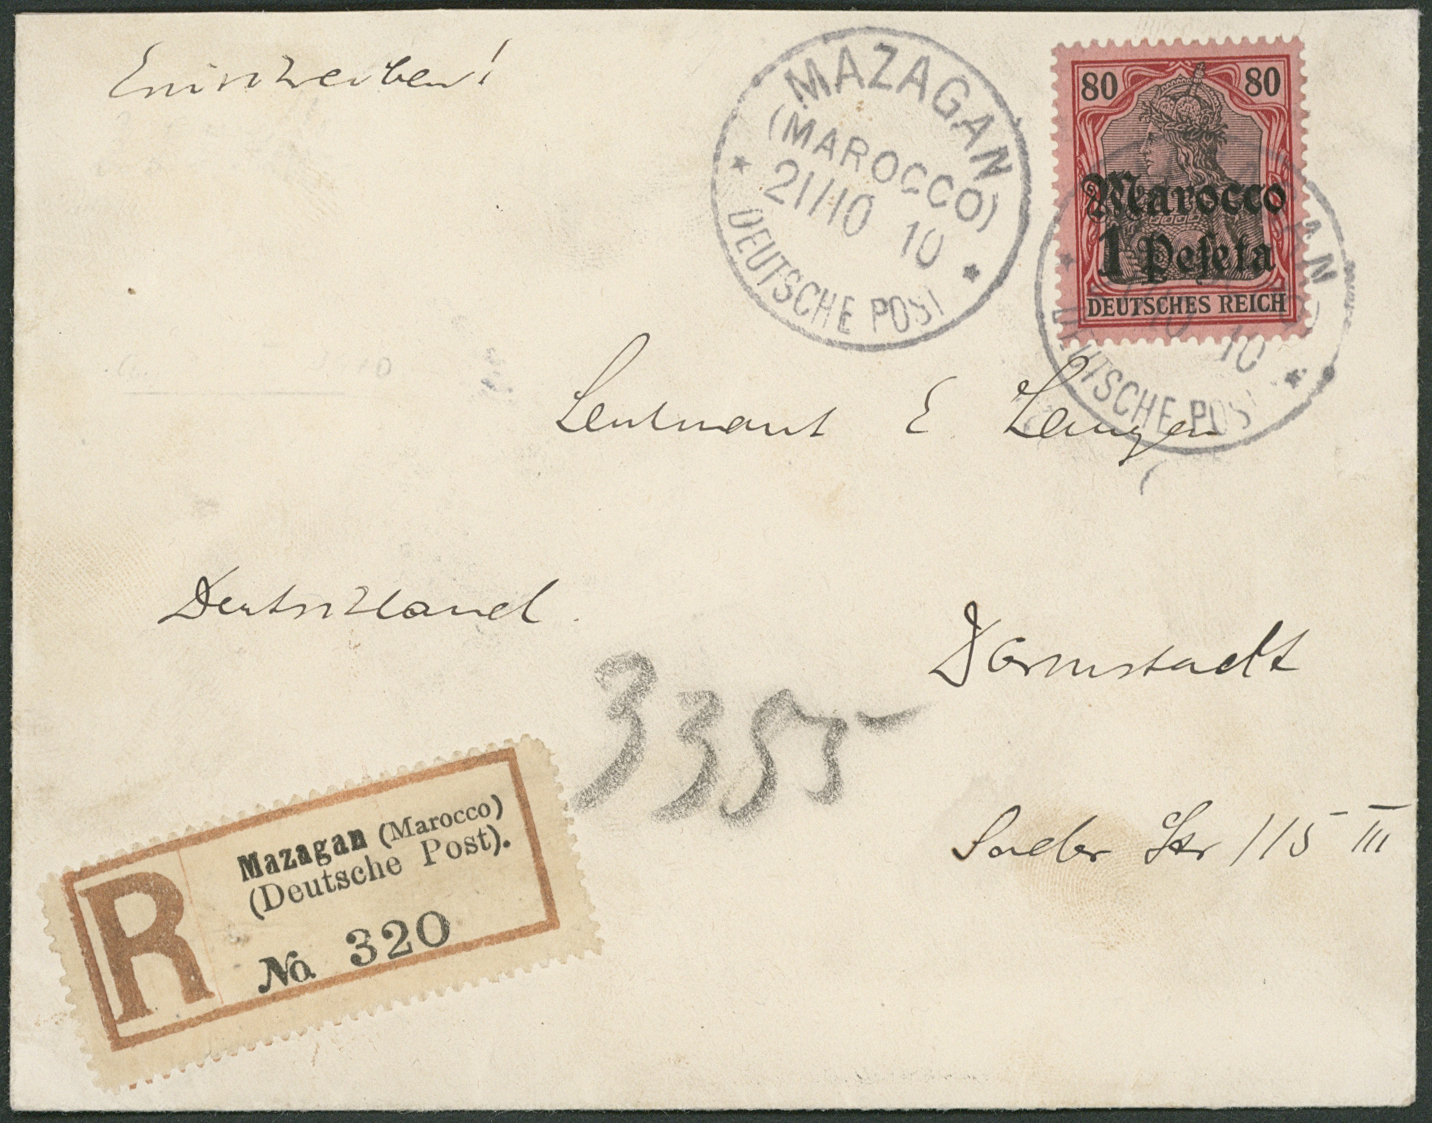 Einschreiben!
MAZAGAN
(MAROCCO)
21/10 10
* DEUTSCHE POST *
80 80
Marocco
1 Peseta
DEUTSCHES REICH
DEUTSCHE POST
10 10
Leutnant E.
Deutschland.
Darmstadt
3355
Str 115 III
R
Mazagan (Marocco)
(Deutsche Post).
No. 320